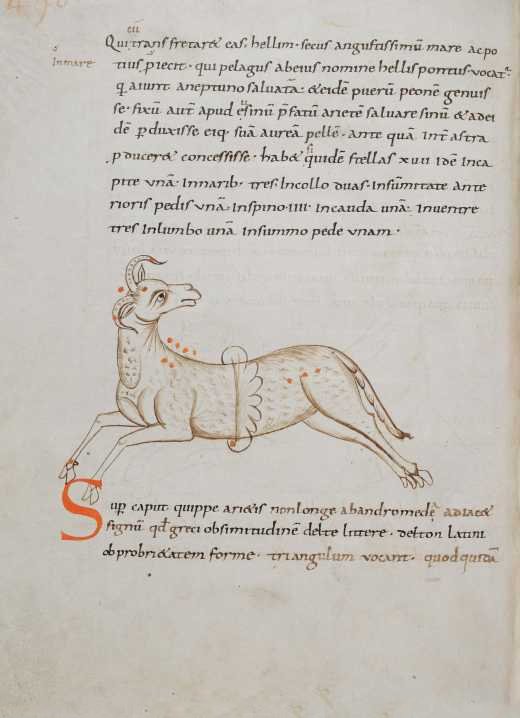 Qui cū trans fretar& eas, hellim · secus angustissimū mare ac po
s̊ In mare
tius p̄iecit · qui pelagus ab eius nomine hellispontus · vocat᷑ ·
q̨ aiunt a neptuno saluatā · & eidē puerū peonē genuis
se · fixū aut̄ apud esinū p̄fatū arietē saluare sinū & ad ei
dē p̱duxisse eiq· suā aureā pellē · ante quā int̄ astra
p̱ducer& concessisse · hab& siquidē stellas xvii idē in ca
pite unā · In narib· tres · In collo duas · In sūmitate ante
rioris pedis unā · In spino · IIII · In cauda unā · In uentre
tres In lumbo unā In summo pede unam ·
Sup̱ caput quippe ari&is non longe ab andromedę adiac&
signū qd̄ greci ob similitudinē delte littere · delton latini
ob propri&atem forme · triangulum uocant · quod quidā